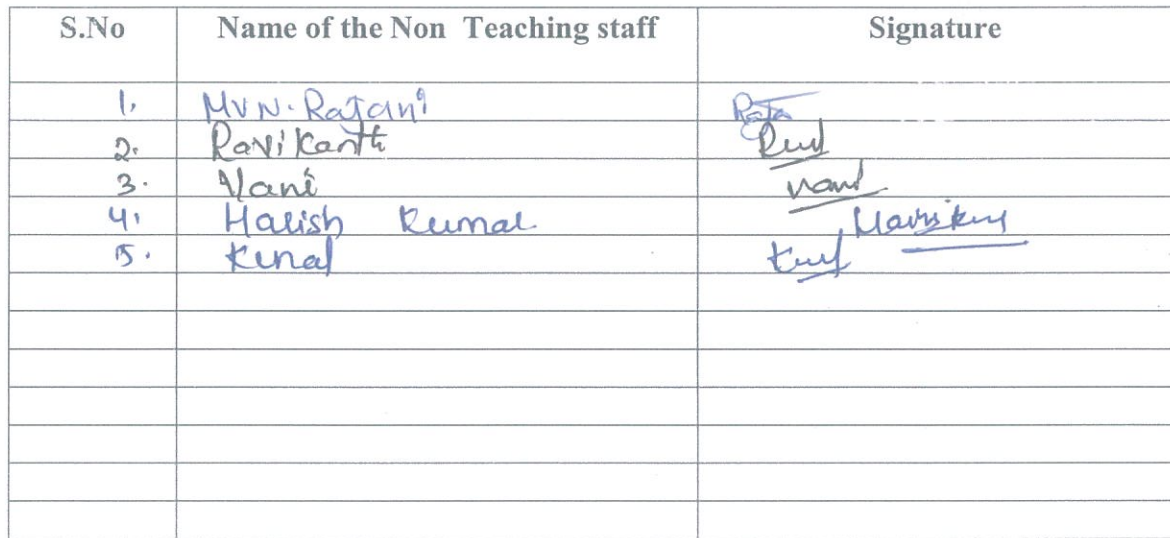 S.No Name of the Non Teaching staff Signature
1. MVN. Rajani Raja
2. Ravi Kanth
3. Vani Vani
4. Harish Kumar
5. Kunal